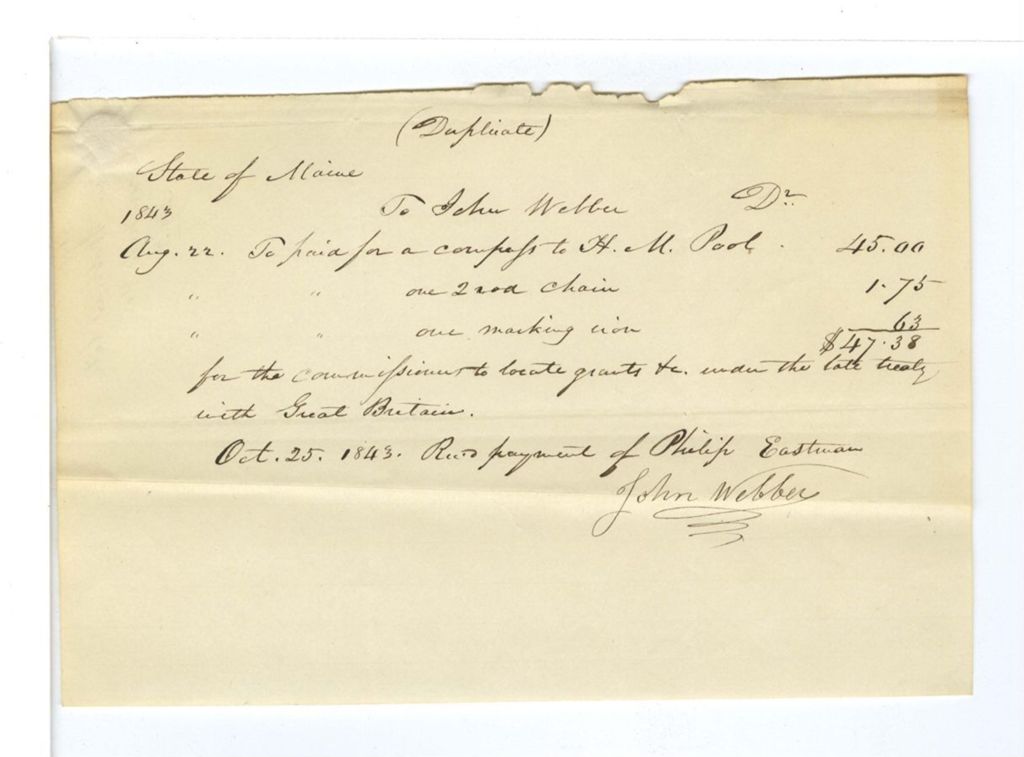 (Duplicate)
State of Maine
1843 To John Webber Dr.
Aug. 22. To paid for a compass to H. M. Pool. 45.00
" " one 2 rod chain 1.75
" " one marking iron 63
$47.38
for the commissioners to locate grants &c. under the late treaty
with Great Britain.
Oct. 25. 1843. Recd payment of Philip Eastman
John Webber